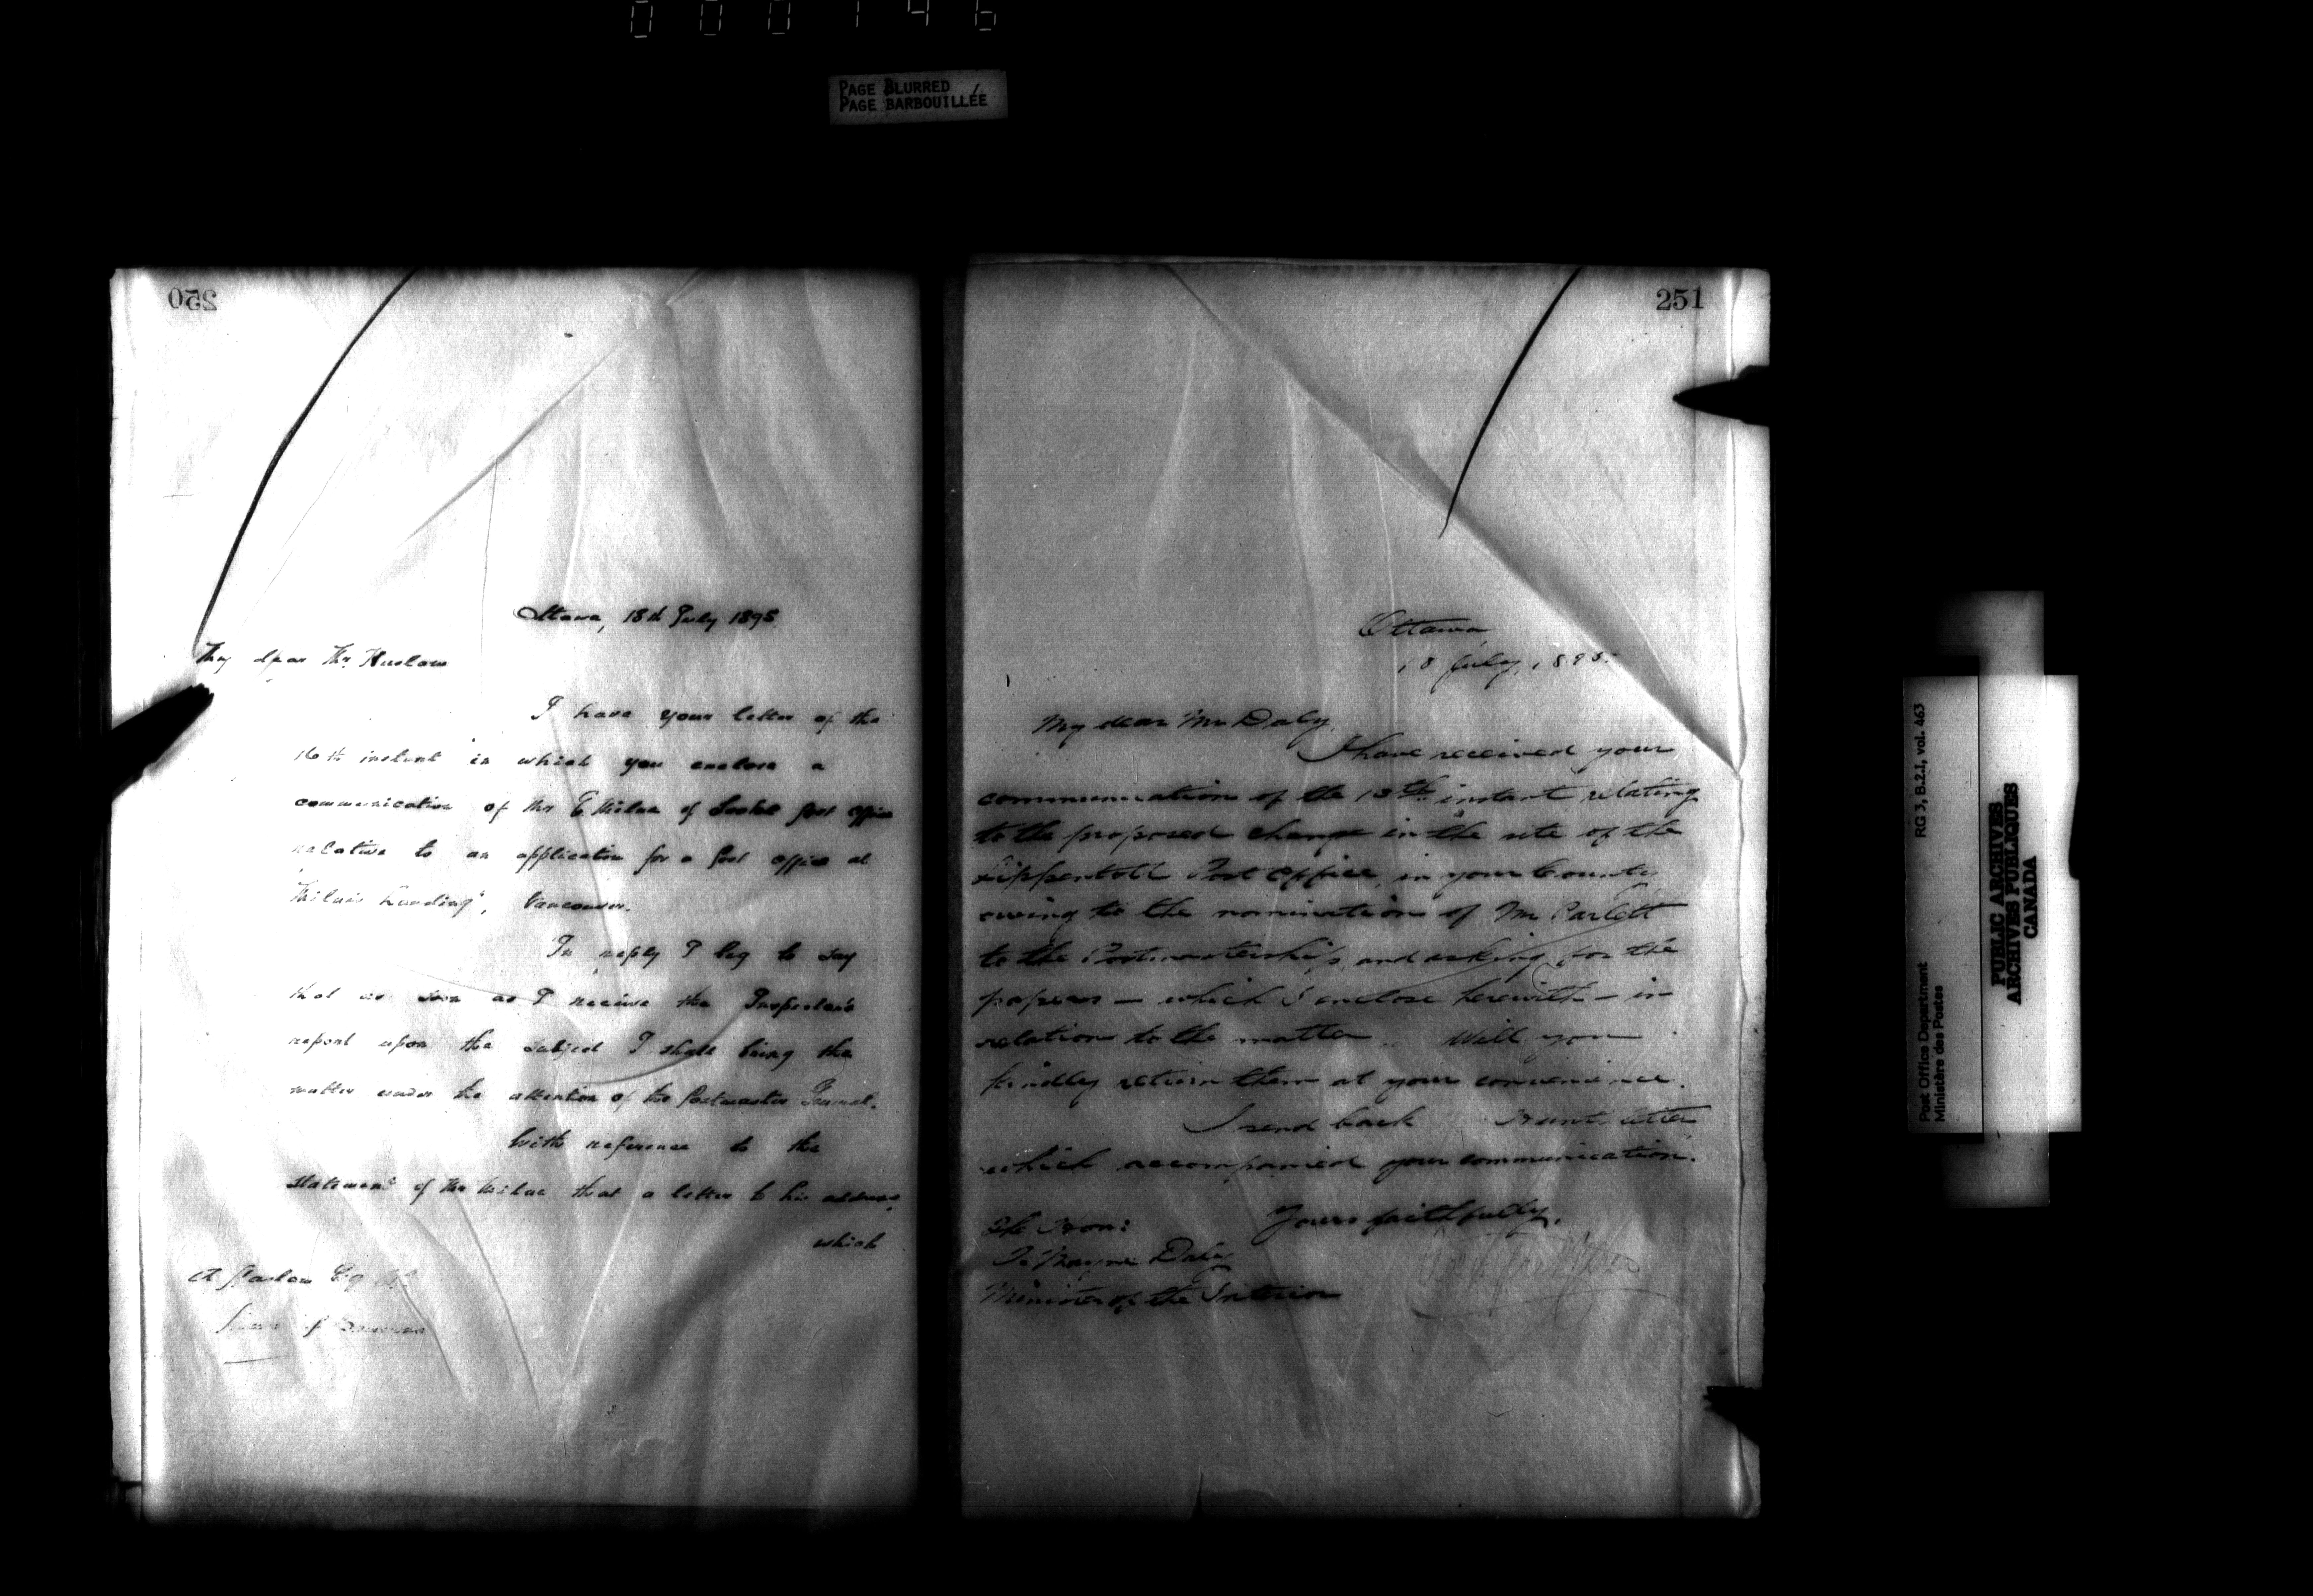 000146
PAGE BLURRED
PAGE BARBOUILLÉE
250
Ottawa, 18th July 1895.
My dear Mr. Haslam
I have your letter of the
16th instant in which you enclose a
communication of Mr E Milne of Sooke post office
relative to an application for a post office at
"Milne's Landing", Vancouver.
In reply I beg to say
that as soon as I receive the Inspector's
report upon the subject I shall bring the
matter under the attention of the Postmaster General.
With reference to the
statement of Mr Milne that a letter to his address,
which
A Haslam Esq MP
House of Commons
251
Ottawa
18 July, 1895.
My dear Mr. Daly,
I have received your
communication of the 13th instant relating
to the proposed change in the site of the
Lippentott Post Office, in your County
owing to the nomination of Mr Parlett
to the Postmastership, and asking for the
papers — which I enclose herewith — in
relation to the matter. Will you
kindly return them at your convenience.
I send back letter
which accompanied your communication.
Yours faithfully,
The Hon:
T. Mayne Daly
Minister of the Interior
Post Office Department
Ministère des Postes
RG 3, B.2.1, vol. 463
PUBLIC ARCHIVES
ARCHIVES PUBLIQUES
CANADA